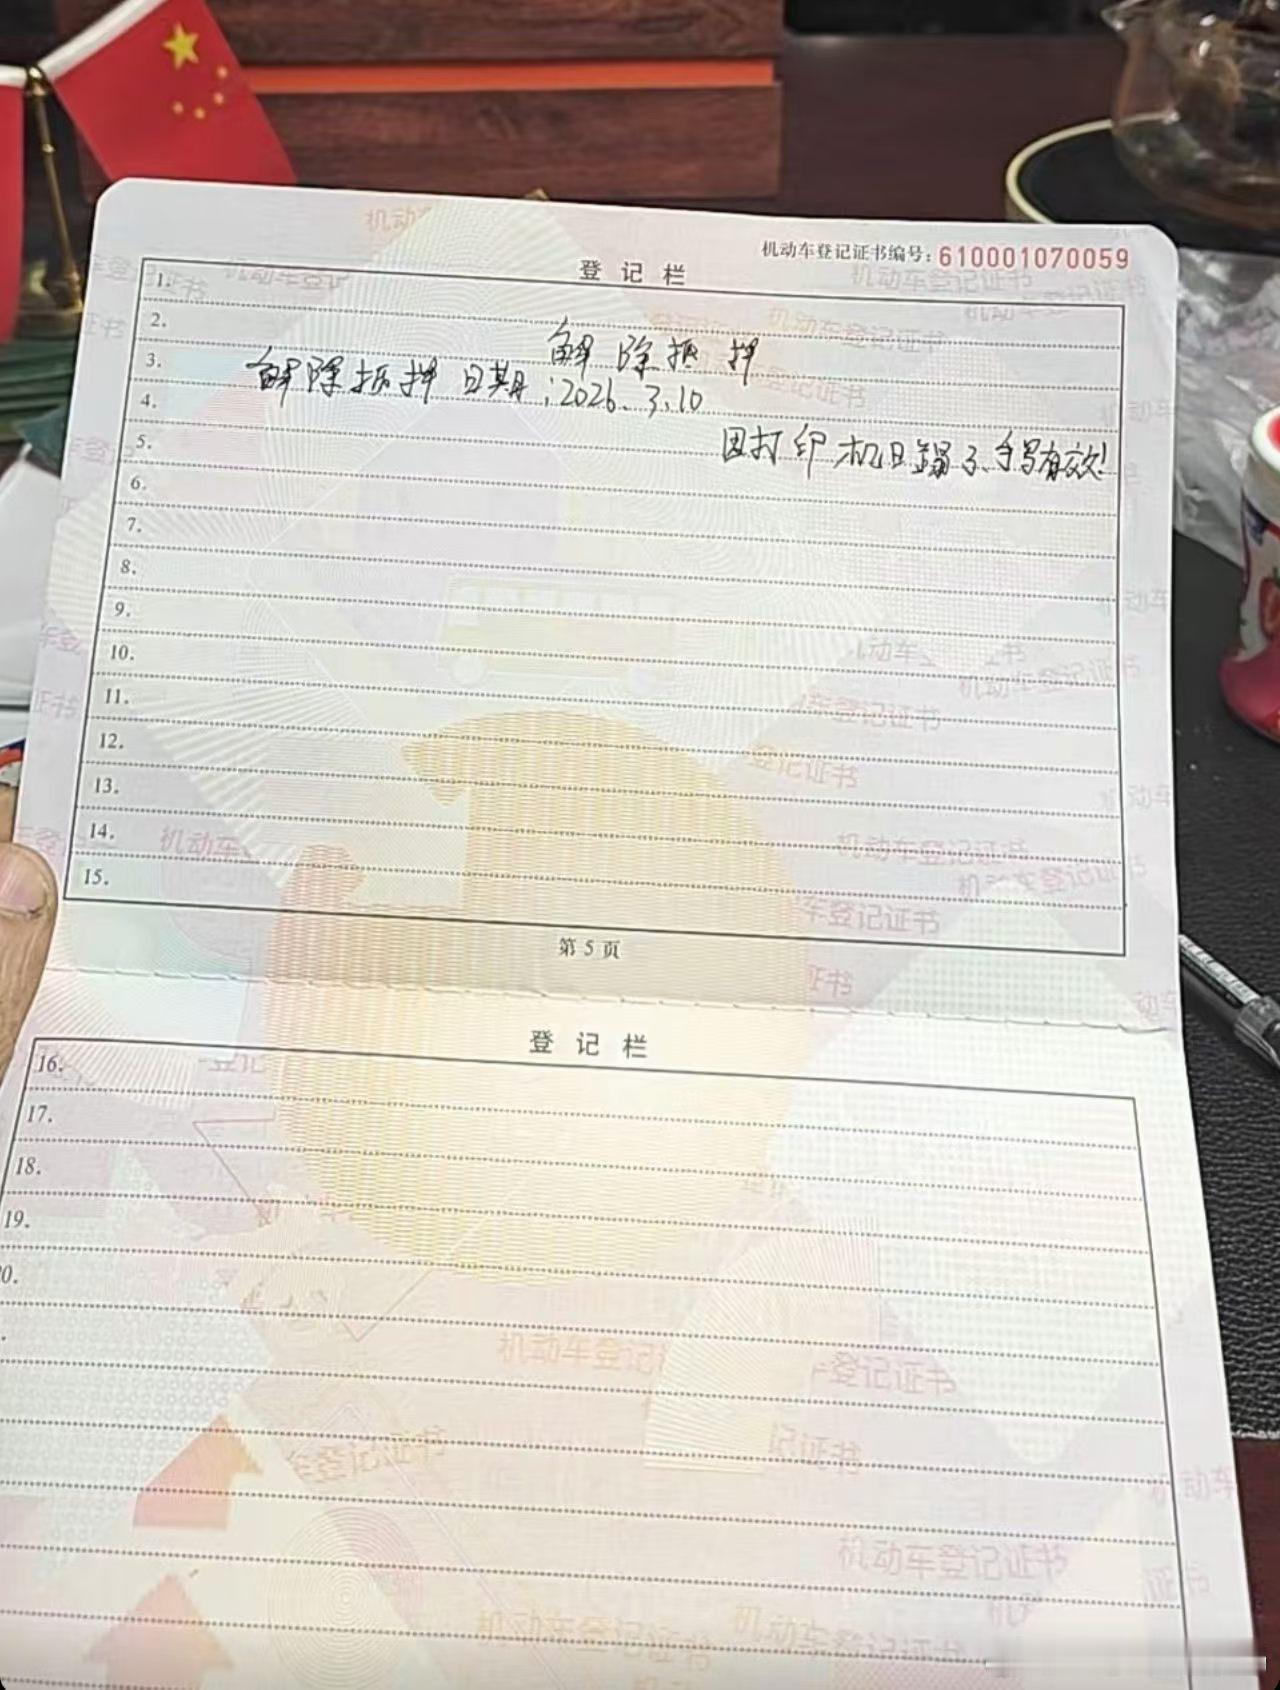 机动车登记证书编号：610001070059
登记栏
1.
2.
解除抵押
3.
解除抵押日期：2026.3.10
4.
5.
因打印机日塌了、手写有效！
6.
7.
8.
9.
10.
11.
12.
13.
14.
15.
第 5 页
登记栏
16.
17.
18.
19.